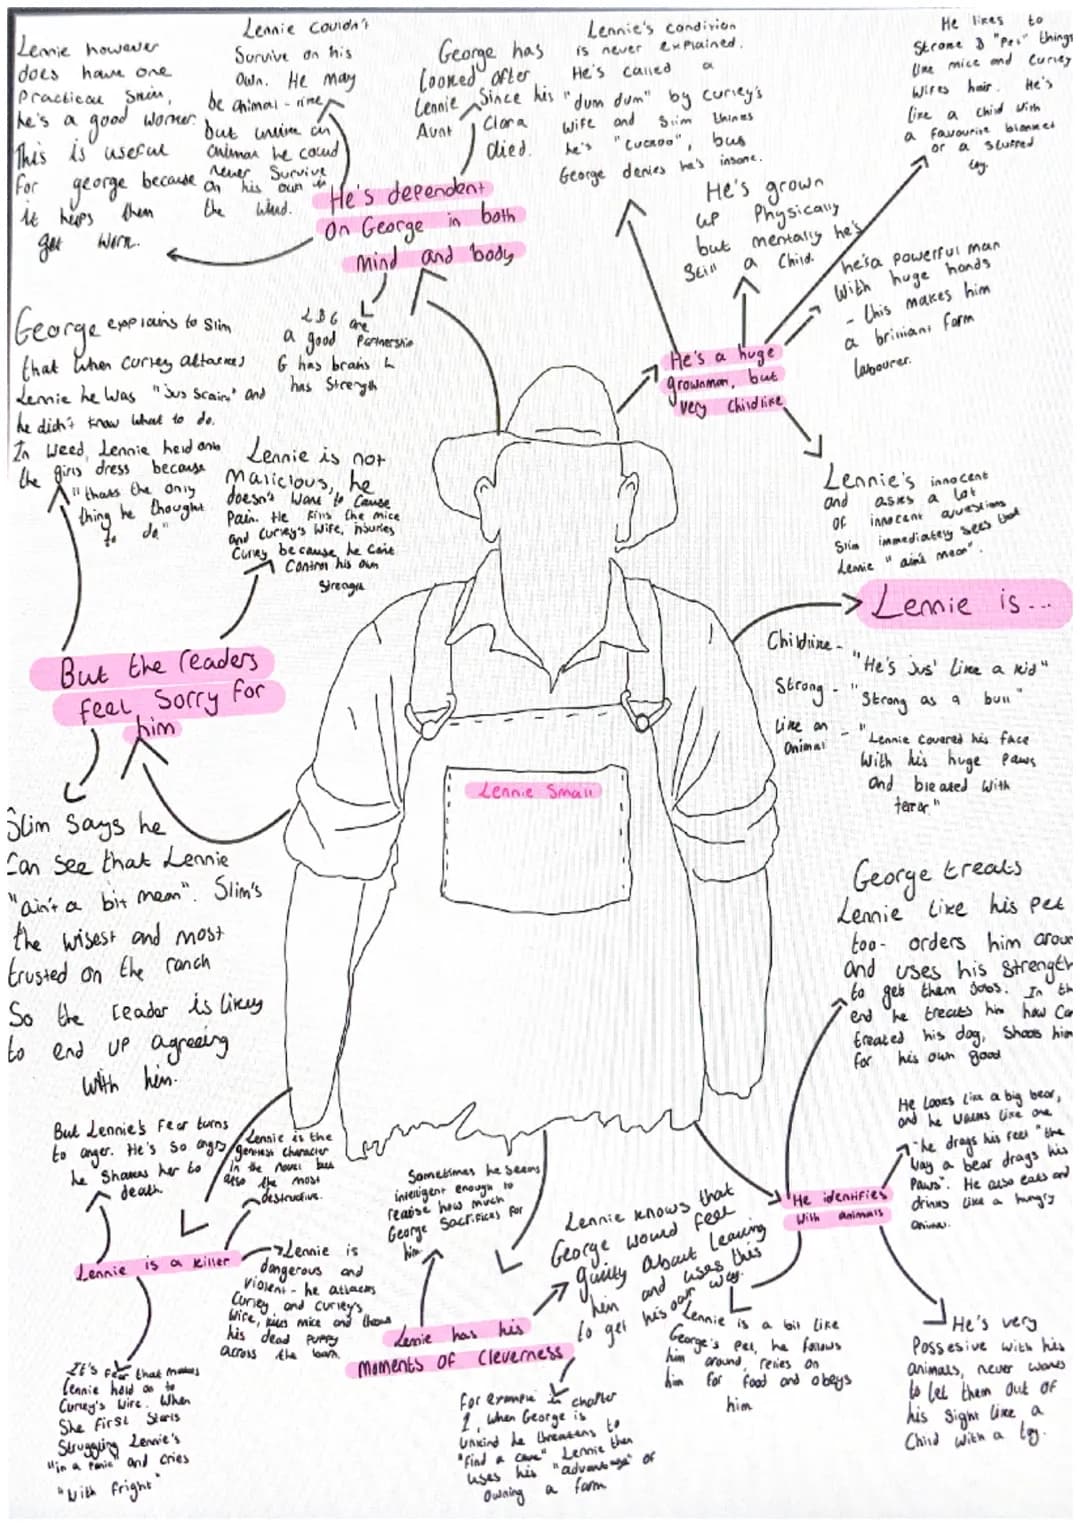 Lennie however
does have one
practical skill,
he's a good worker.
This is useful
for george because
it helps them
get work.
Lennie couldn't
survive on his
own. He may
be animal-like
but unlike an
animal he could
never survive
on his own in
the wild.
George has
looked after
Lennie since his
Aunt Clara
died.
He's dependent
on George in both
mind and body
L & G are
a good partnership
G has brains L
has strength
Lennie's condition
is never explained.
He's called a
"dum dum" by curley's
wife and Slim thinks
he's "cuckoo", but
George denies he's insane.
He likes to
stroke & "pet" things
like mice and Curley
wifes hair. He's
like a child with
a favourite blanket
or a stuffed
toy.
He's grown
up physically
but mentally he's
still a child.
he's a powerful man
with huge hands
- this makes him
a brilliant farm
labourer.
He's a huge
grownman, but
very childlike
Lennie's innocent
and asks a lot
of innocent questions
Slim immediately sees that
Lennie "ain't mean".
George explains to Slim
that when Curley attacked
Lennie he was "jus scairt" and
he didn't know what to do.
In Weed, Lennie held onto
the girls dress because
"thats the only
thing he thought
to do"
Lennie is not
malicious, he
doesn't want to cause
pain. He kills the mice
and Curley's wife, injuries
Curley because he cant
control his own
strength
But the readers
feel sorry for
him
Slim says he
can see that Lennie
"ain't a bit mean". Slim's
the wisest and most
trusted on the ranch
So the reader is likely
to end up agreeing
with him.
Lennie is...
Childlike - "He's jus' like a kid"
Strong - "Strong as a bull"
Like an animal - "Lennie covered his face
with his huge paws
and bleated with
terror"
Lennie Small
George treats
Lennie like his pet
too - orders him
and uses his strength
to get them jobs. In
end he treats him how
treated his dog, shoots him
for his own good
He looks like a big bear,
and he walks like one
"he drags his feet "the
way a bear drags his
paws". He also eats and
drinks like a hungry
animal.
He identifies
with animals
Lennie is a bit like
George's pet, he follows
him around, relies on
him for food and obeys
him
He's very
possesive with his
animals, never wants
to let them out of
his sight like a
child with a toy.
But Lennie's fear turns
to anger. He's so angry
he shakes her to
death.
Lennie is the
gentlest character
in the novel but
also the most
destructive.
Lennie is a killer
Lennie is
dangerous and
violent - he attacks
Curley and Curley's
wife, kills mice and throws
his dead puppy
across the barn.
It's fear that makes
Lennie hold on to
Curley's wife. When
she first starts
struggling Lennie's
"in a panic" and cries
"with fright"
Sometimes he seems
intelligent enough to
realise how much
George sacrifices for
him.
Lennie has his
moments of cleverness
Lennie knows that
George would feel
guilty about leaving
him and uses this
to get his own way.
For example in chapter
1, when George is
unkind he threatens to
"find a cave" Lennie then
uses his "advantage" of
owning a farm